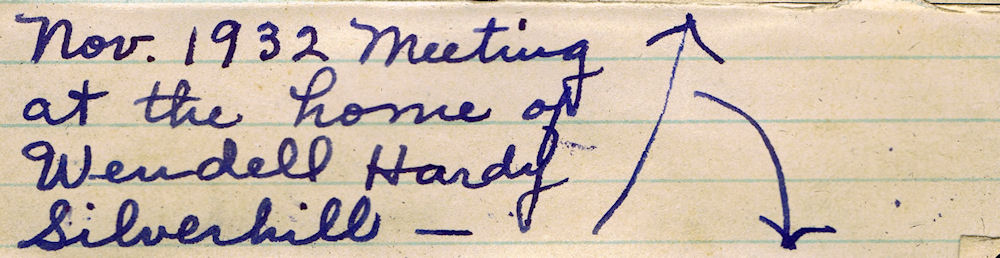 Nov. 1932 Meeting
at the home of
Wendell Hardy
Silverhill —